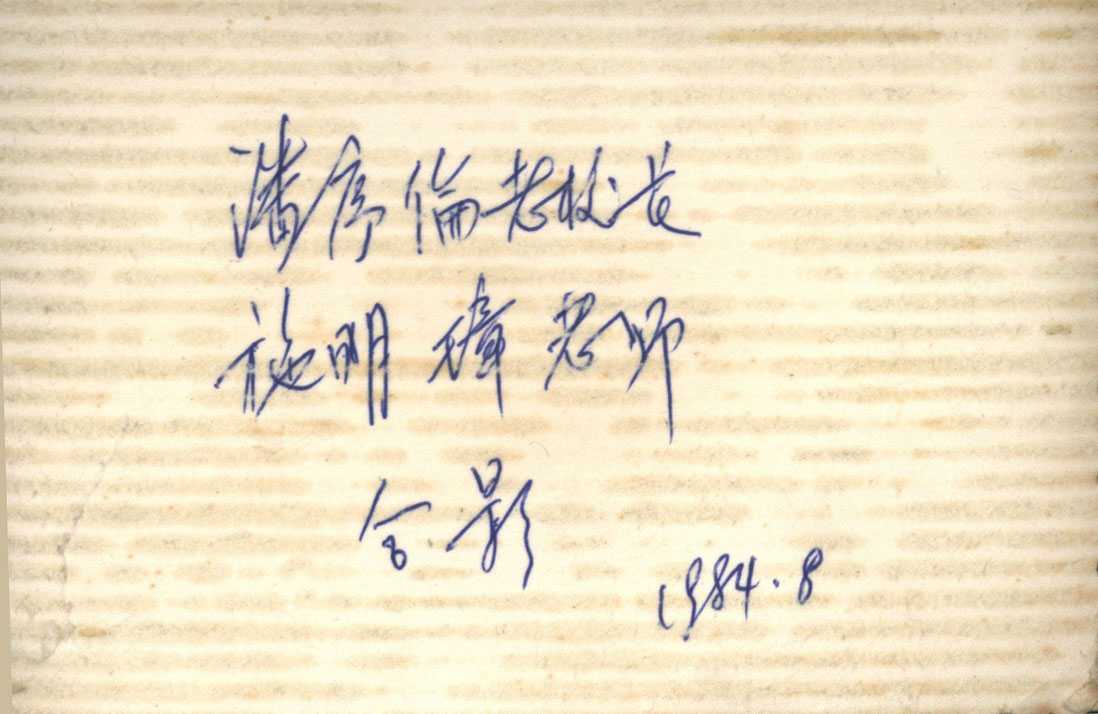 潘序倫老校长
施明樟老师
合影
1984.8